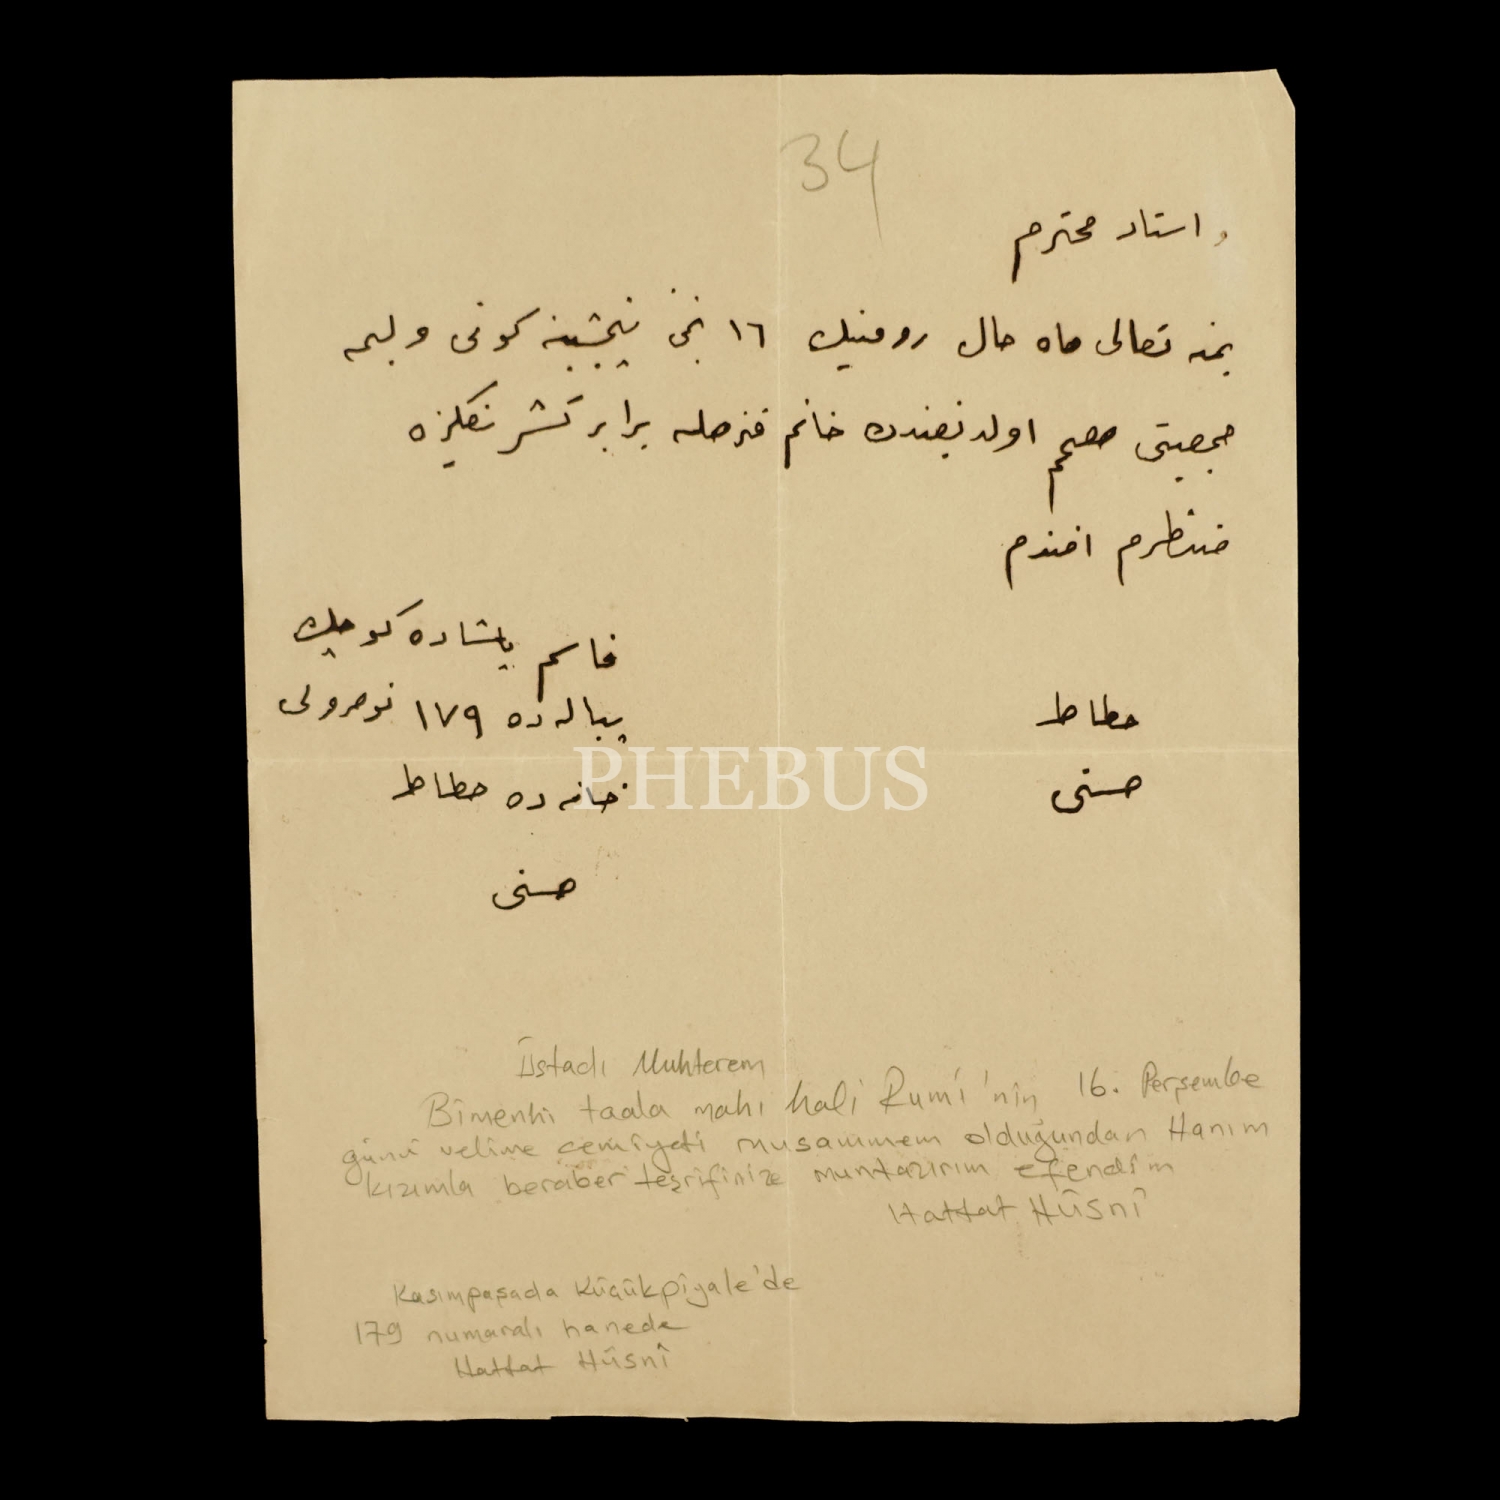 34
استاد محترم
بمنه تعالى ماه حال رومينك ١٦ نجى پنجشنبه كونى وليمه
جمعيتى مصمم اولديغندن خانم قزمله برابر تشريفكزه
منتظرم افندم
خطاط
حسنى
قاسم پاشاده كوچك
پياله ده ١٧٩ نومرولى
خانه ده خطاط
حسنى
PHEBUS
Üstadı Muhterem
Bîmenhi taala mahı hali Rumî'nin 16. Perşembe
günü velime cemiyeti musammem olduğundan Hanım
kızımla beraber teşrifinize muntazırım efendîm
Hattat Hüsnî
Kasımpaşada Küçükpîyale'de
179 numaralı hanede
Hattat Hüsnî